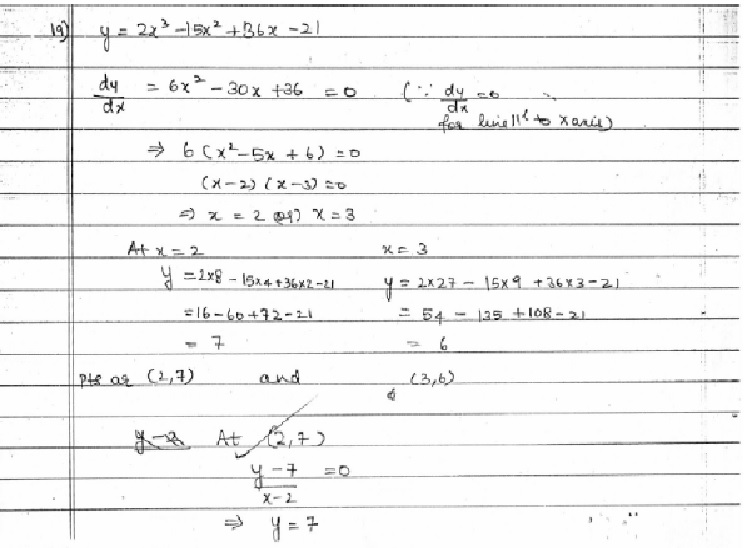 19) y = 2x³ - 15x² + 36x - 21
dy/dx = 6x² - 30x + 36 = 0 (∵ dy/dx = 0
for line ∥ˡ to x axis)
⇒ 6(x² - 5x + 6) = 0
(x-2) (x-3) = 0
⇒ x = 2 or x = 3
At x = 2 x = 3
y = 2x8 - 15x4 + 36x2 - 21 y = 2x27 - 15x9 + 36x3 - 21
= 16 - 60 + 72 - 21 = 54 - 135 + 108 - 21
= 7 = 6
Pts are (2,7) and (3,6)
At (2,7)
y - 7 / x - 2 = 0
⇒ y = 7